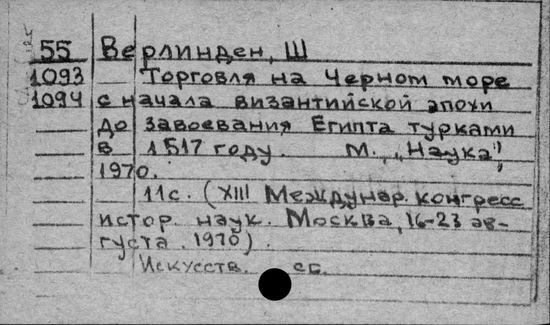 55 Верлинден, Ш
1093 Торговля на Черном море
1094 с начала византийской эпохи
до завоевания Египта турками
в 1517 году. М., „Наука”,
1970.
11с. (XIII Междунар. конгресс
истор. наук. Москва, 16-23 ав-
густа. 1970).
Искусств. сб.